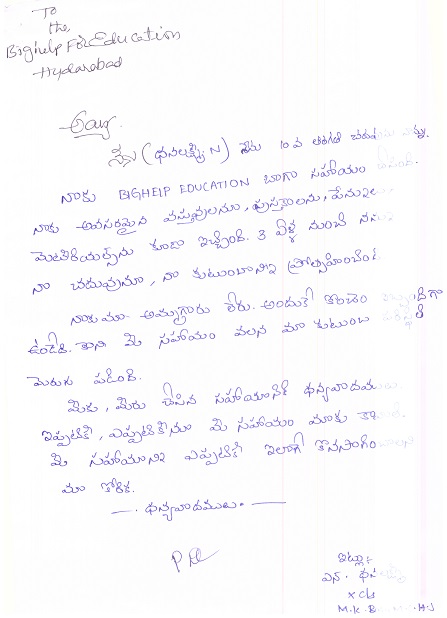 To
the
Bighelp For Education
Hyderabad
నేను (ధనలక్ష్మి. N) నేను 10 వ తరగతి
నాకు BIGHELP EDUCATION బాగా సహాయం
నాకు అవసరమైన వస్తువులనూ, పుస్తకాలను, పేనులు
మెటిరియల్స్‌ను కూడా ఇచ్చింది. 3 ఏళ్ళ నుంచి
నా చదువునూ, నా కుటుంబానికి
నాకు మా అమ్మగారు లేరు. అందుకే కొంచెం
ఉండేది. కాని మీ సహాయం వలన మా కుటుంబ
మెరుగు పడింది.
మీకు, మీరు చేసిన సహాయానికి
ఇప్పటికి, ఎప్పటికీనూ మీ సహాయం మాకు
మీ సహాయానికి ఎప్పటికి ఇలాగే
మా కోరిక.
—. ధన్యవాదములు. —
ఇట్లు:
ఎన్.
X cls
M.K.B H.S